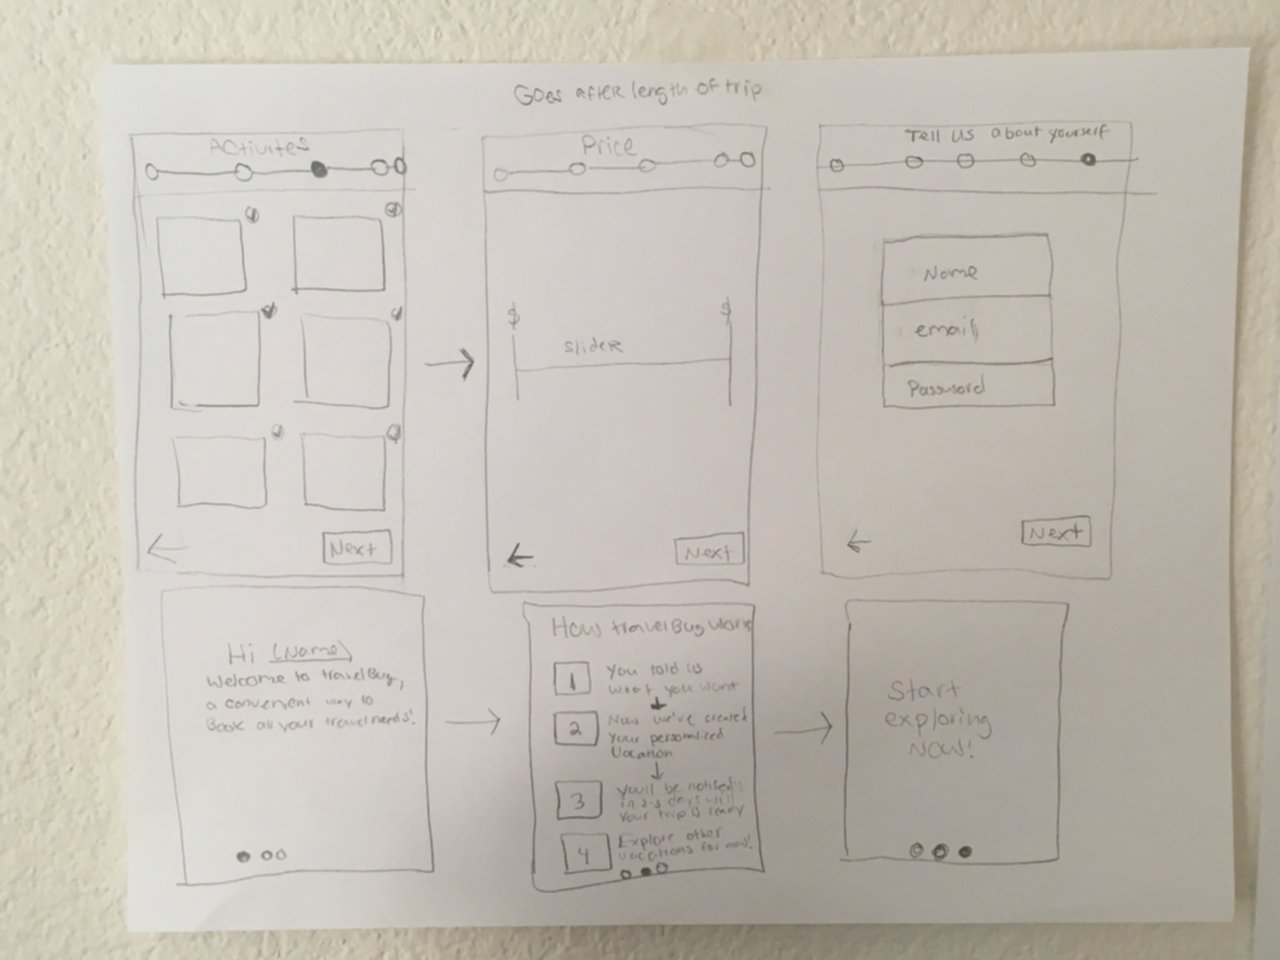 Goes after length of trip
Activites
Next
Price
$ $
Slider
Next
Tell us about yourself
Name
email
Password
Next
Hi (Name)
Welcome to travelBug,
a convenient way to
Book all your travel needs!
How travelBug works
1 You told us
what you want
2 Now we've created
your personalized
Vacation
3 You'll be notified
in 2-3 days
your trip is ready
4 Explore other
vacations for now!
Start
exploring
Now!